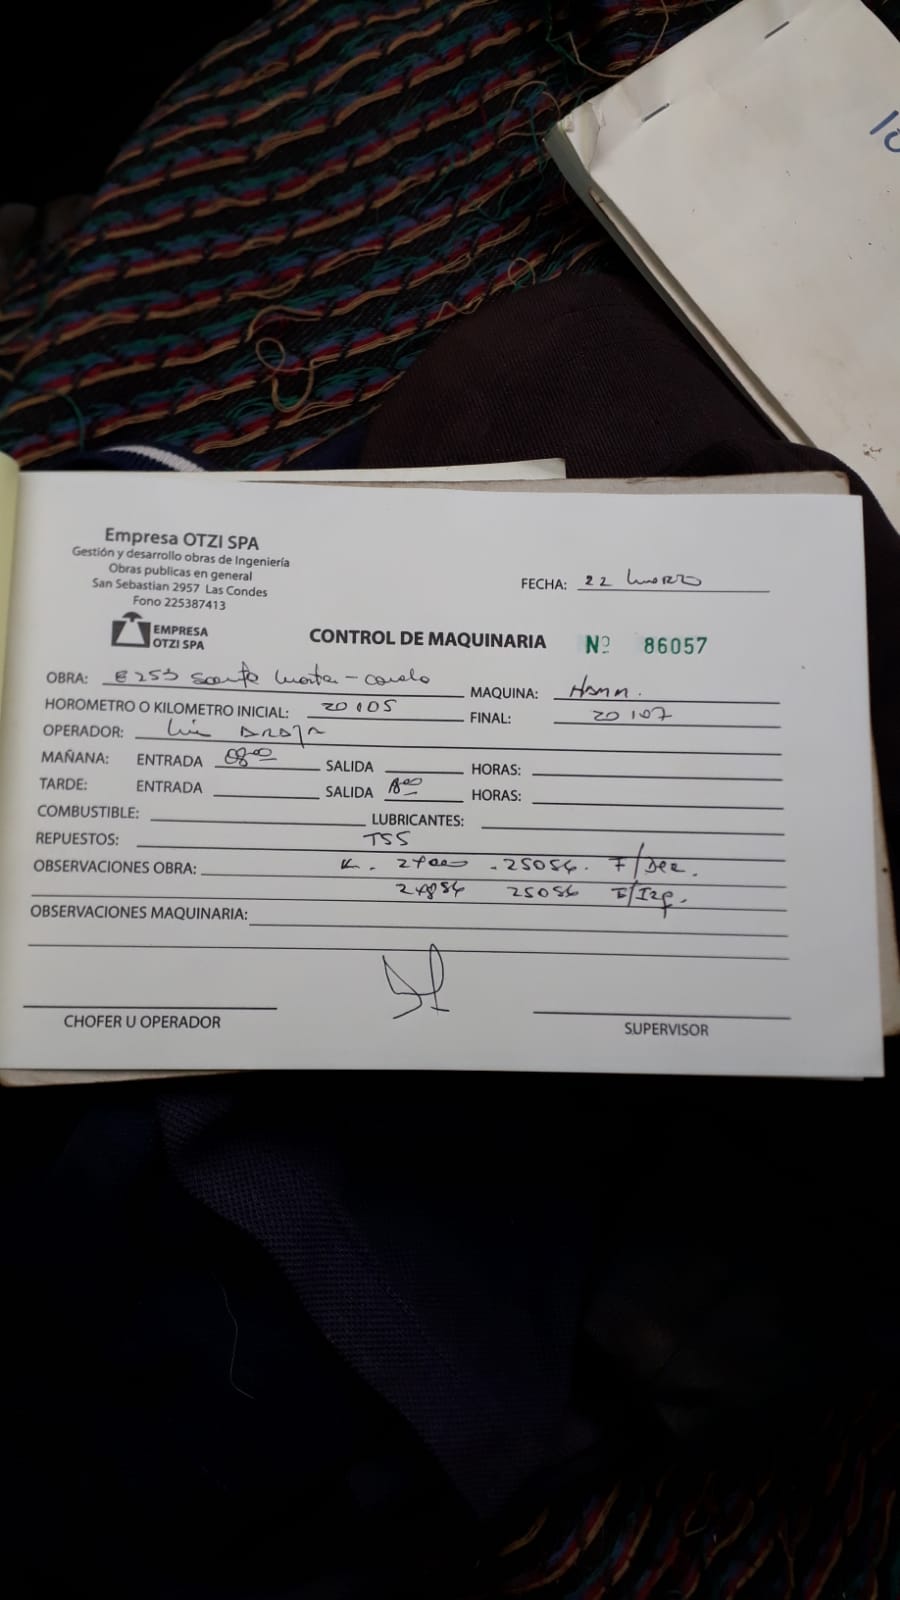 10
Empresa OTZI SPA
Gestión y desarrollo obras de Ingeniería
Obras publicas en general
San Sebastian 2957 Las Condes
Fono 225387413
EMPRESA
OTZI SPA
FECHA: 22 marzo
CONTROL DE MAQUINARIA Nº 86057
OBRA: E 253 Santa Marta - MAQUINA: Hamm.
HOROMETRO O KILOMETRO INICIAL: 20105 FINAL: 20107
OPERADOR: Luis
MAÑANA: ENTRADA 08:00 SALIDA HORAS:
TARDE: ENTRADA SALIDA 18:00 HORAS:
COMBUSTIBLE: LUBRICANTES:
REPUESTOS: TSS
OBSERVACIONES OBRA: K. . 25054. F/Der.
24854 25054 F/Izq.
OBSERVACIONES MAQUINARIA:
CHOFER U OPERADOR SUPERVISOR